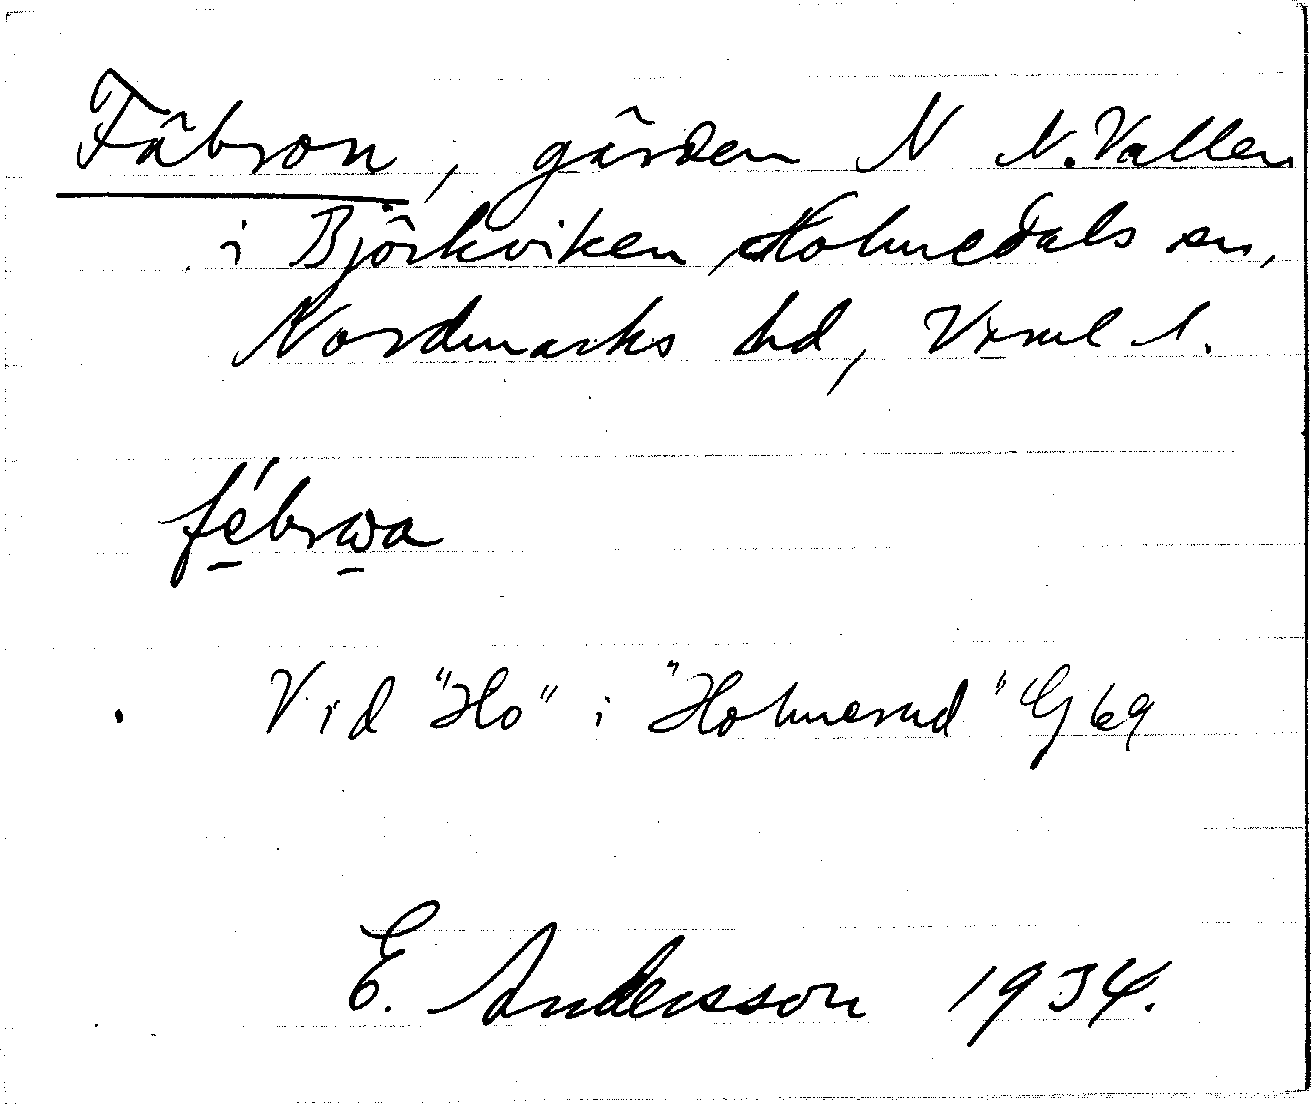 Fäbron, gården N N. Vallen
i Björkviken, Holmedals sn,
Nordmarks hd, Vrml l.
fé̲brω̲a
Vid "Ho" i "Holmerud" G 69
E. Andersson 1934.